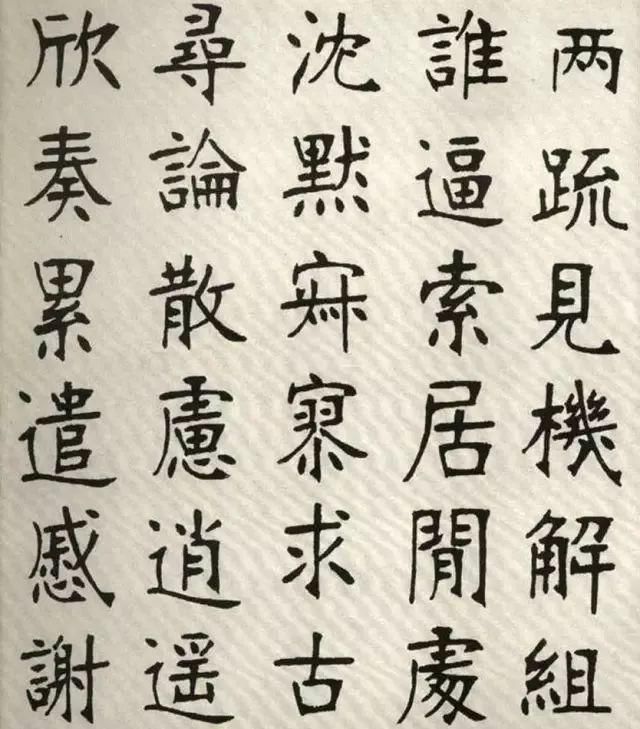 两疏見機解組
誰逼索居閒處
沈默寂寥求古
尋論散慮逍遥
欣奏累遣慼謝